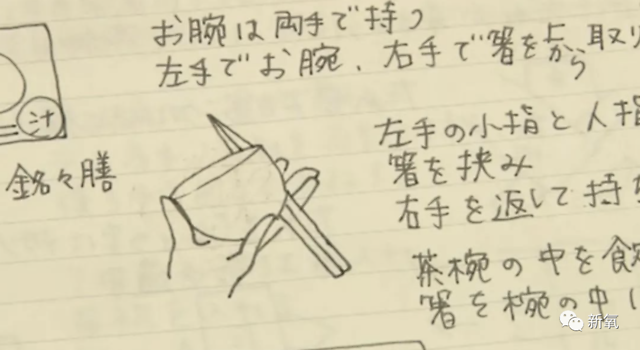 お腕は両手で持つ
左手でお腕、右手で箸を上から取り
汁
銘々膳
左手の小指と人指
箸を挟み
右手を返して持ち
茶椀の中を食
箸を椀の中
新氧